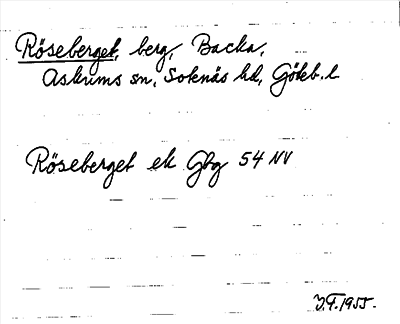 Röseberget, berg, Backa,
Askums sn, Sotenäs hd, Göteb. l
Röseberget ek Gbg 54 NV
1955.